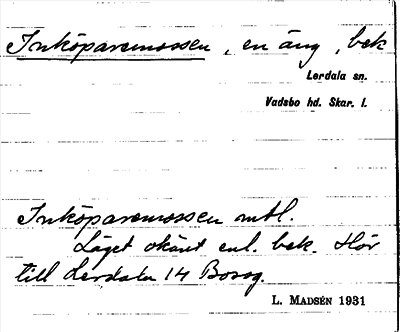 Inköparemossen, en äng, bek
Lerdala sn.
Vadsbo hd. Skar. l.
Inköparemossen mtl.
Läget okänt enl. bek. Hör
till Lerdala 14
L. MADSÉN 1931